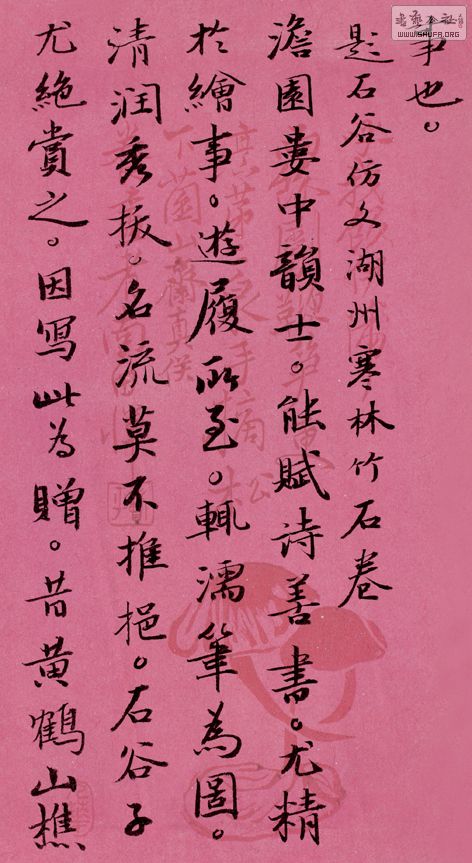 事也。
題石谷仿文湖州寒林竹石卷
澹園婁中韻士。能賦詩善書。尤精
於繪事。遊履所至。輒濡筆為圖。
清潤秀拔。名流莫不推挹。石谷子
尤絕賞之。因寫此為贈。昔黃鶴山樵
書藝公社
WWW.SHUFA.ORG